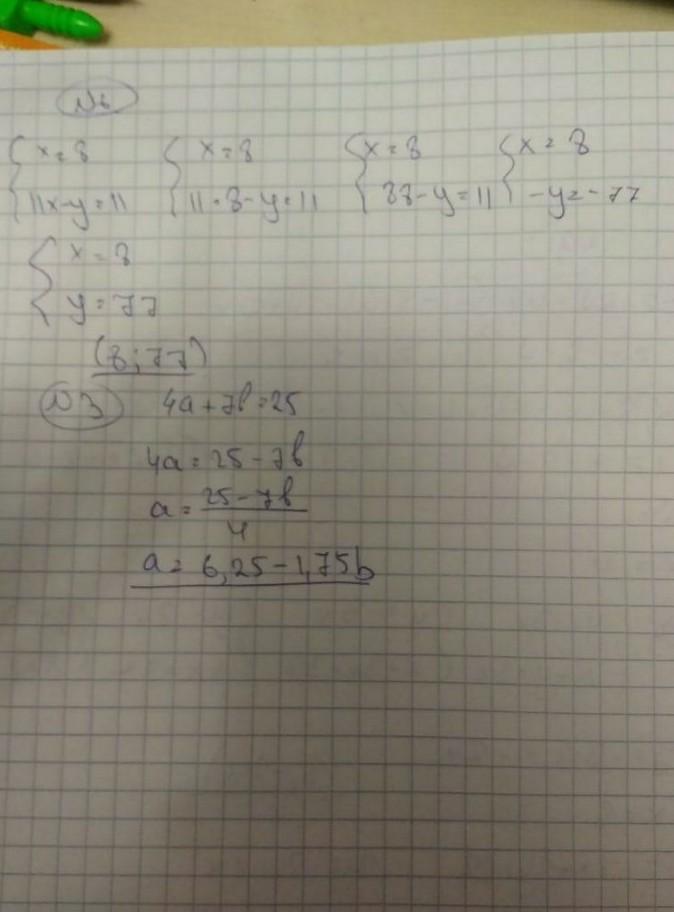 №6
{ x = 8 { x = 8 { x = 8 { x = 8
{ 11x-y=11 { 11·8-y=11 { 88-y=11 { -y=-77
{ x = 8
{ y = 77
(8;77)
№3 4a+7b=25
4a=25-7b
a= 25-7b
4
a= 6,25-1,75b